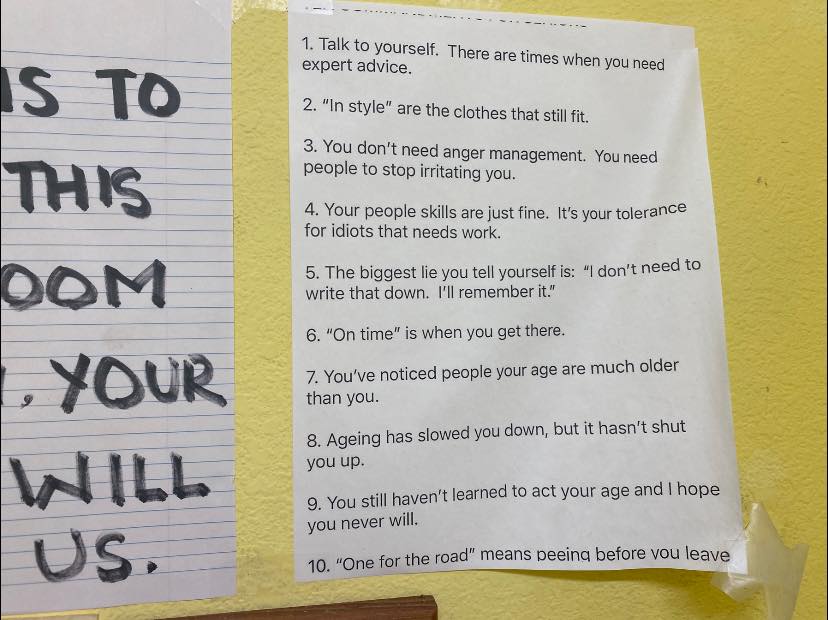 IS TO
THIS
OOM
, YOUR
WILL
US.
1. Talk to yourself.  There are times when you need
expert advice.
2. “In style” are the clothes that still fit.
3. You don’t need anger management.  You need
people to stop irritating you.
4. Your people skills are just fine.  It’s your tolerance
for idiots that needs work.
5. The biggest lie you tell yourself is:  “I don’t need to
write that down.  I’ll remember it.”
6. “On time” is when you get there.
7. You’ve noticed people your age are much older
than you.
8. Ageing has slowed you down, but it hasn’t shut
you up.
9. You still haven’t learned to act your age and I hope
you never will.
10. “One for the road” means peeing before you leave